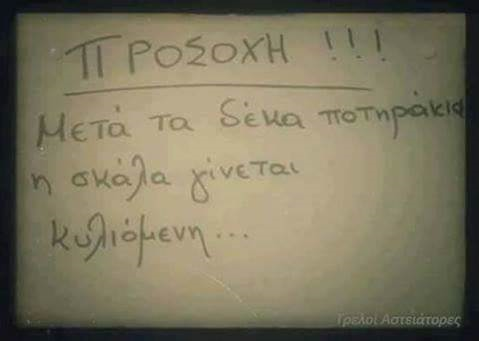 ΠΡΟΣΟΧΗ !!!
Μετά τα δέκα ποτηράκια
η σκάλα γίνεται
κυλιόμενη...
Τρελοί Αστειάτορες